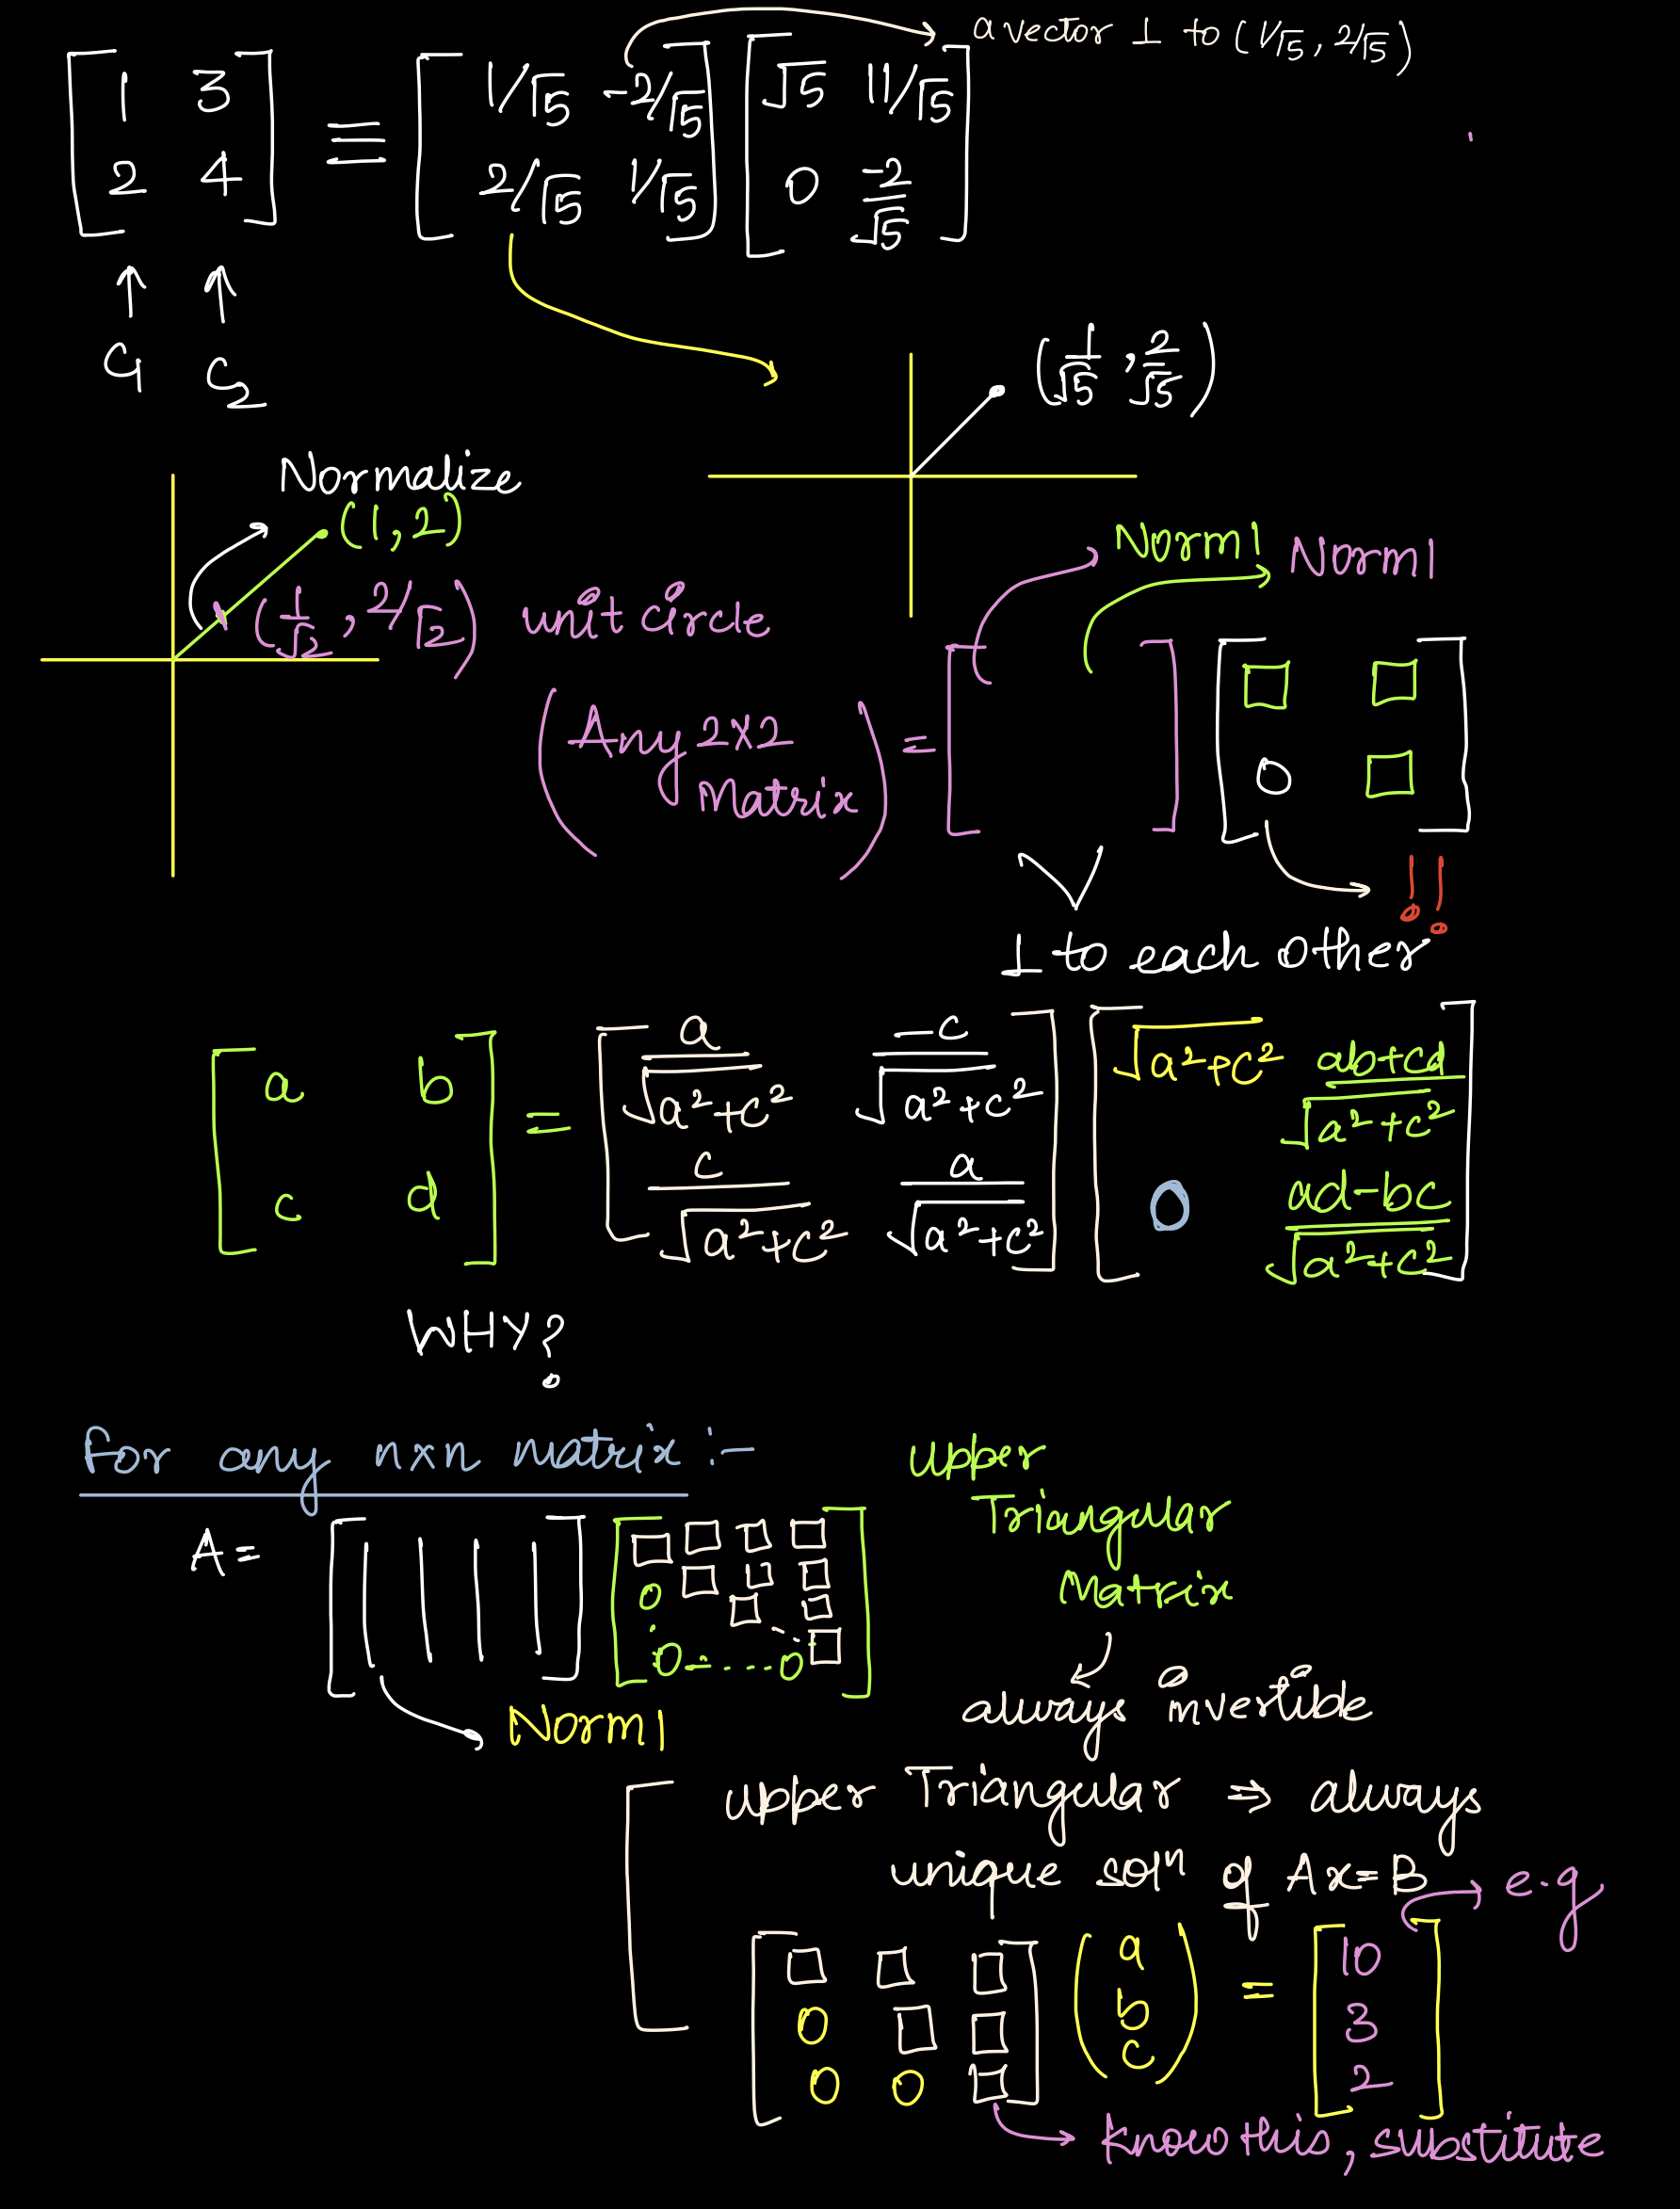 a vector ⊥ to (1/√5, 2/√5)
[1 3; 2 4] ≡ [1/√5 -2/√5; 2/√5 1/√5] [√5 11/√5; 0 -2/√5]
↑ ↑
C1 C2
(1/√5, 2/√5)
Normalize
(1,2)
Norm1 Norm1
(1/√2, 2/√2) unit circle
(Any 2x2 Matrix) = [ ] [□ □; 0 □]
!!
⊥ to each other
[a b; c d] = [a/√a²+c² -c/√a²+c²; c/√a²+c² a/√a²+c²] [√a²+c² ab+cd/√a²+c²; 0 ad-bc/√a²+c²]
WHY?
for any nxn matrix :-
upper
Triangular
Matrix
A = [| | | |] [□ □ □ □; 0 □ □ □; : □ □; 0 - . . . . 0 □]
Norm1
always invertible
upper Triangular ⇒ always
unique solⁿ of Ax=B → e.g
[□ □ □; 0 □ □; 0 0 □] (a b c) = [10 3 2]
know this, substitute